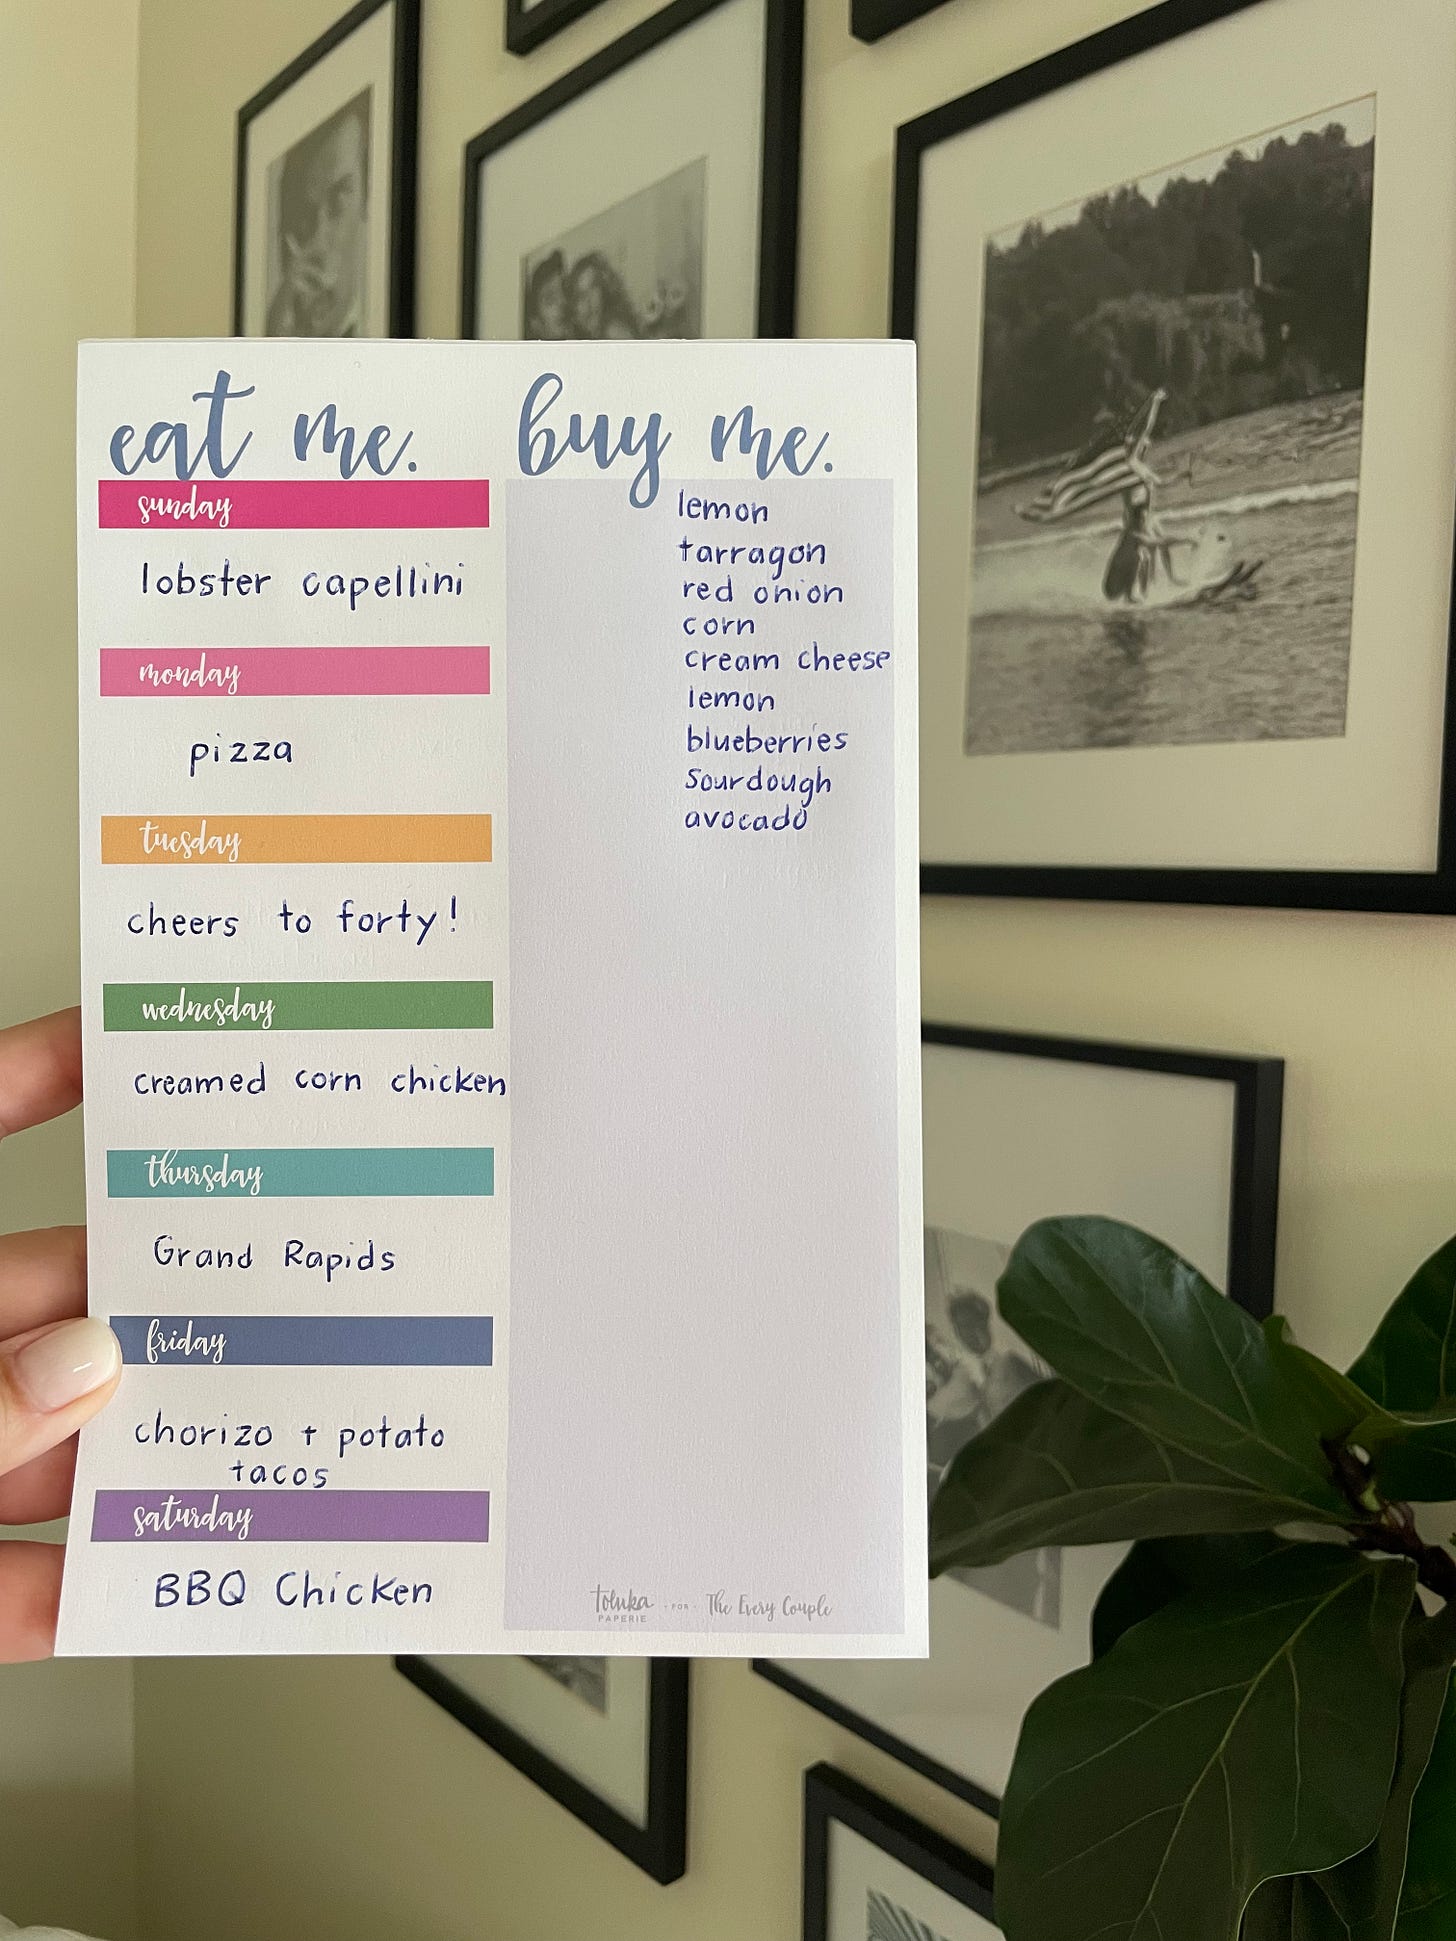 eat me.
sunday
lobster capellini
monday
pizza
tuesday
cheers to forty!
wednesday
creamed corn chicken
thursday
Grand Rapids
friday
chorizo + potato
tacos
saturday
BBQ Chicken
buy me.
lemon
tarragon
red onion
corn
cream cheese
lemon
blueberries
Sourdough
avocado
toluka PAPERIE - FOR - The Every Couple